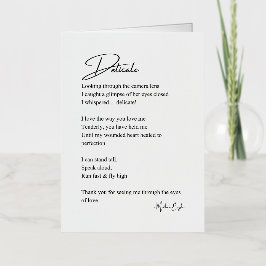 Delicate
Looking through the camera lens
I caught a glimpse of her eyes closed
I whispered... delicate!
I love the way you love me
Tenderly, you have held me
Until my wounded heart healed to
perfection
I can stand tall,
Speak cloud,
Run fast & fly high
Thank you for seeing me through the eyes
of love